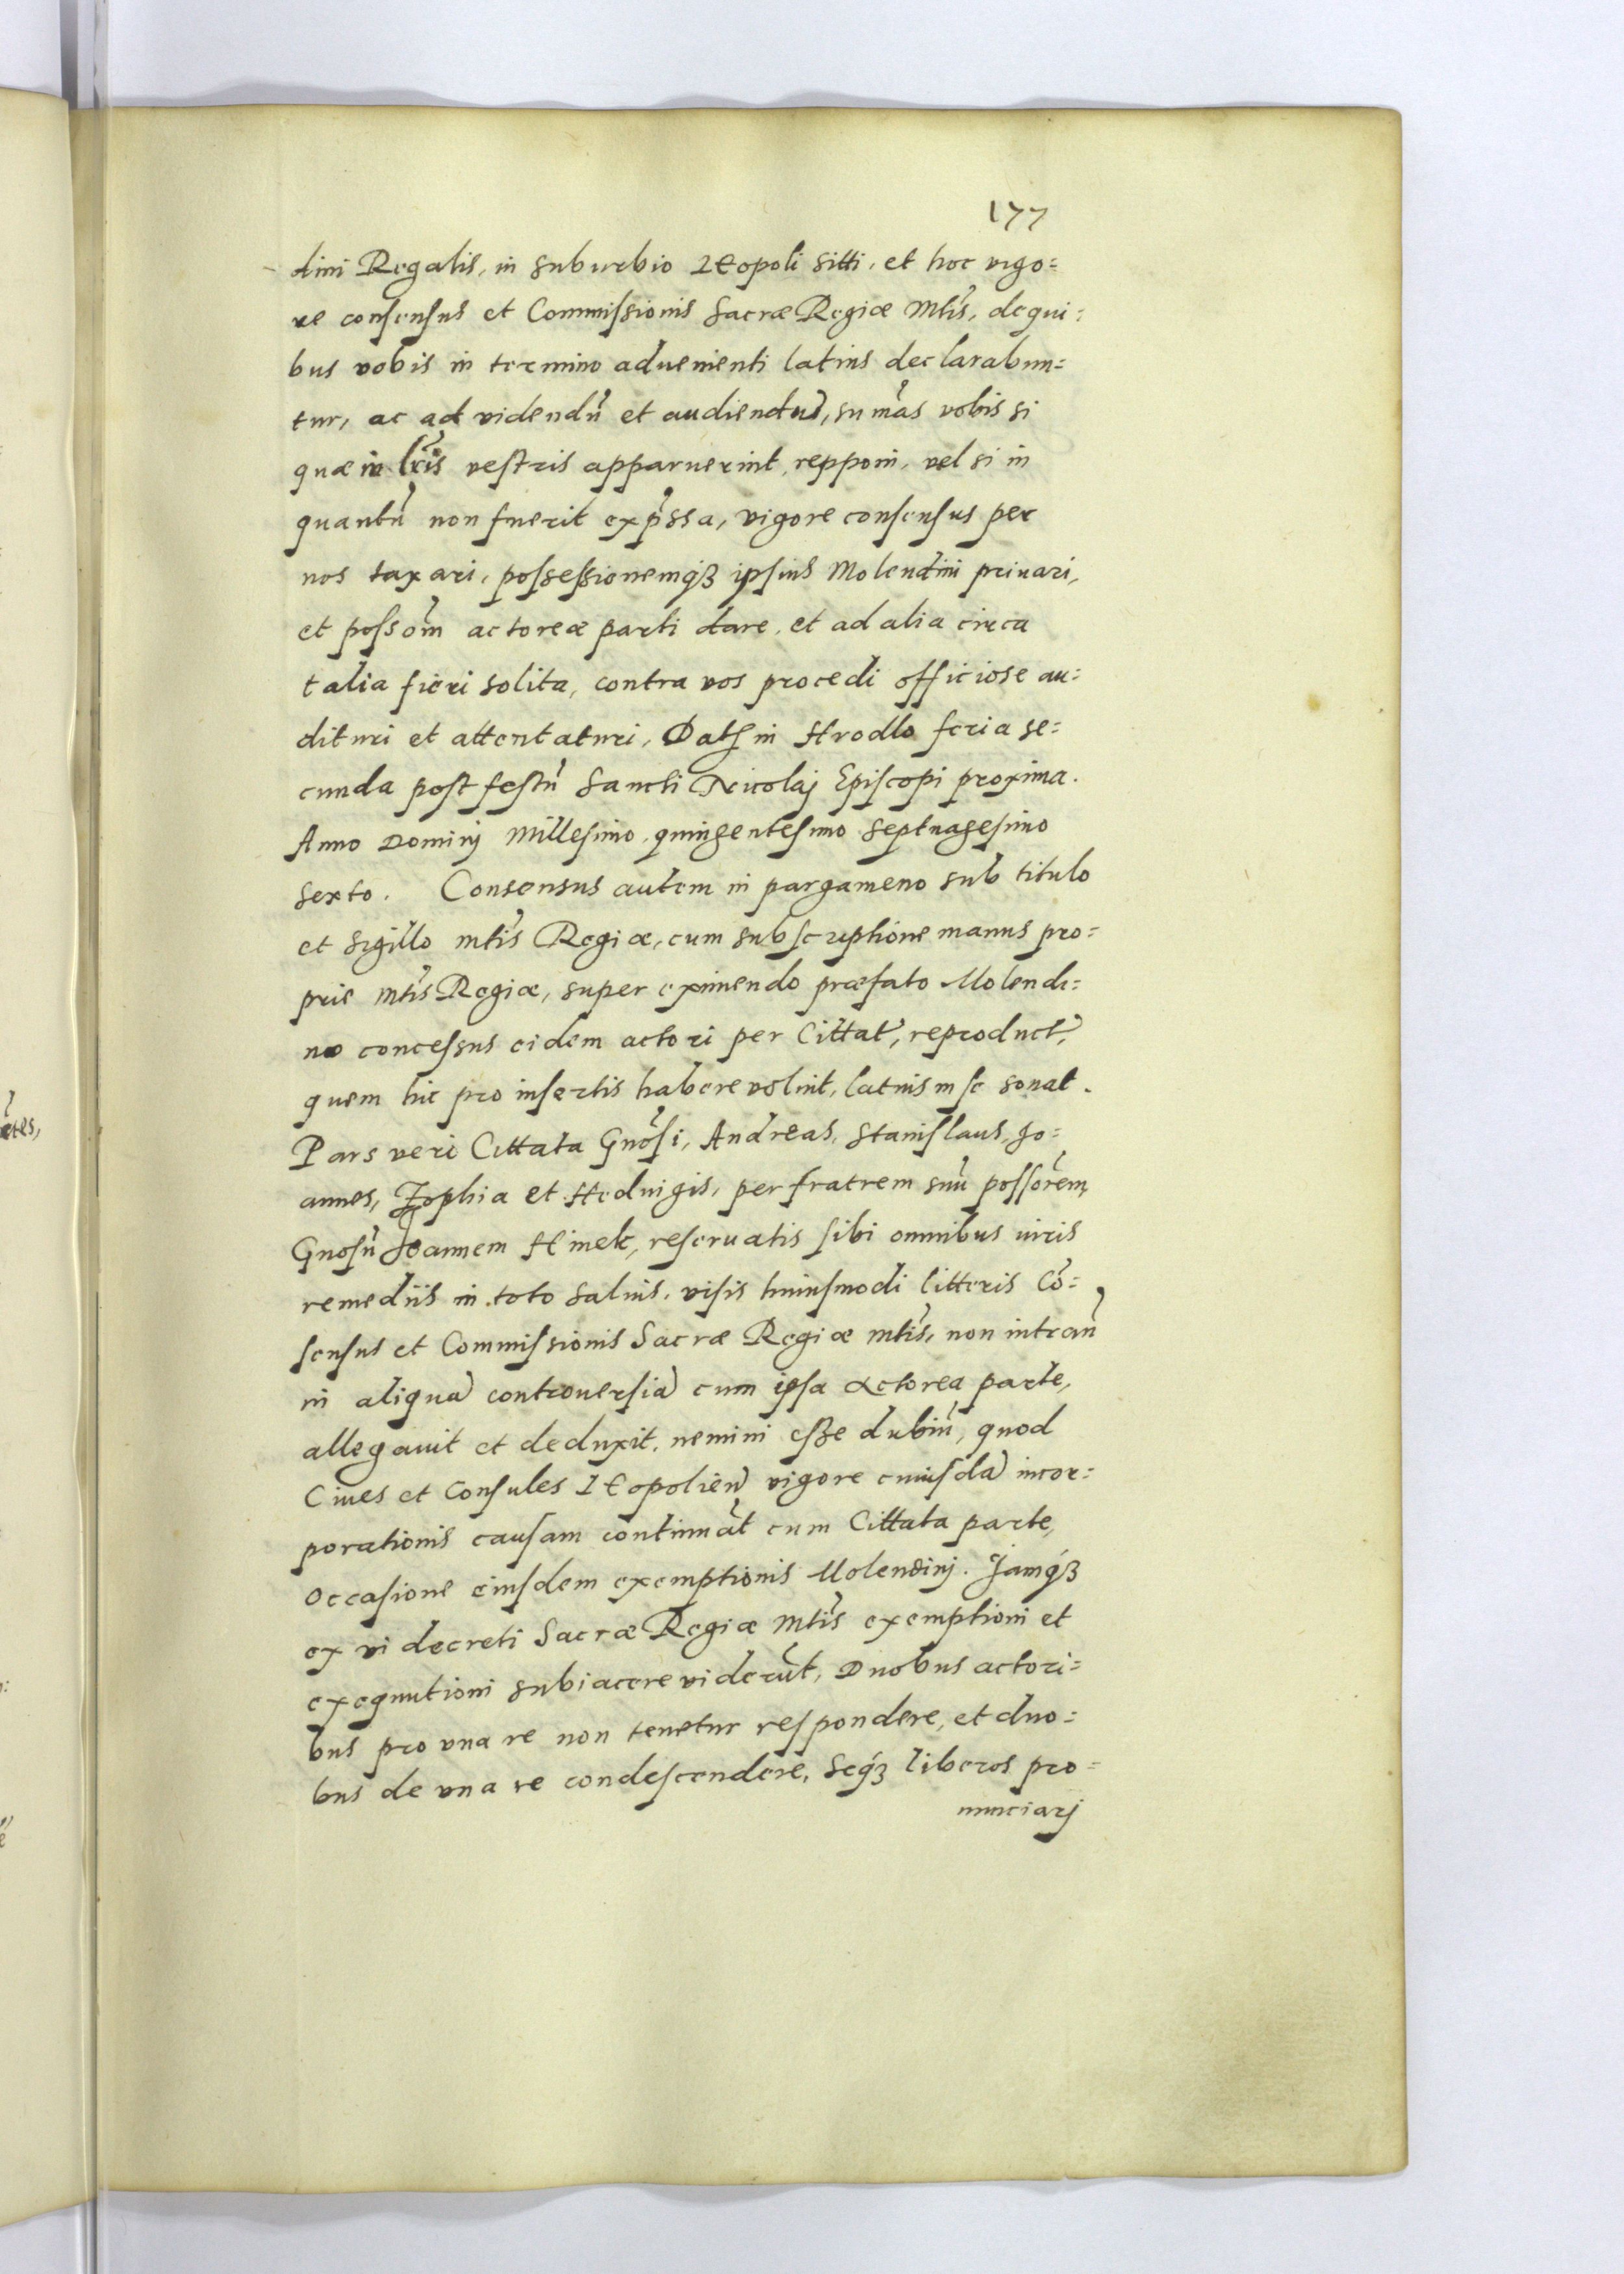 177
dini Regalis, in suburbio Leopoli sitti, et hoc vigo=
re consensus et Commissionis Sacræ Regiæ Mtis, de qui=
bus vobis in termino aduenienti latius declarabun=
tur, ac ad videndũ et audiendũ, sum̃as vobis si
quæ in lr̃is vestris apparuerint, repponi, vel si in
quantũ non fuerit exp̃ssa, vigore consensus per
nos taxari, possessionemq₃ ipsius Molendini priuari,
et possom̃ actoreæ parti dare, et ad alia circa
talia fieri solita, contra vos procedi officiose au=
dituri et attentaturi, Datȝ in Hrodlo feria se=
cunda post festũ Sancti Nicolaj Episcopi proxima.
Anno Dominj Millesimo quingentesimo Septuagesimo
Sexto. Consensus autem in pargameno sub titulo
et Sigillo mtis Regiæ, cum subscriptione manus pro=
prie mtis Regiæ, super eximendo præfato Molendi=
no concessus eidem actori per Cittat̃, reproduct̃,
quem hic pro insertis habere volunt, latius in se sonat.
Pars veri Cittata Gnosi, Andreas, Stanislaus, Jo=
annes, Zophia et Heduigis, per fratrem suũ possorem̃,
Gnosũ Joannem Hinek, reseruatis sibi omnibus iuris
remediis in toto saluis, visis huiusmodi litteris Cõ=
sensus et Commissionis Sacræ Regiæ mtis, non intrañ
in aliquã controuersiã cum ipsa actorea parte,
allegauit et deduxit, nemini esse dubiũ, quod
Ciues et Consules Leopolieñ vigore cuiusdã incor=
porationis causam continuãt cum Cittata parte,
occasione eiusdem exemptionis Molendinj. Jamq₃
ex vi decreti Sacræ Regiæ mtis exemptioni et
exequutioni subiacere viderũt, Duobus actori=
bus pro vna re non tenetur respondere, et duo=
bus de vna re condescendere, Seq₃ liberos pro=
nunciarj